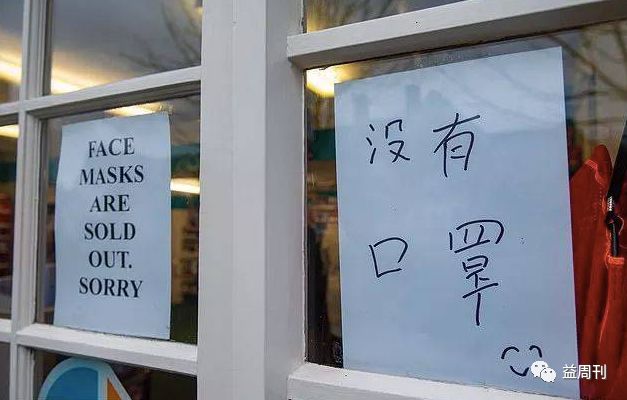 FACE
MASKS
ARE
SOLD
OUT.
SORRY
没有
口罩
益周刊